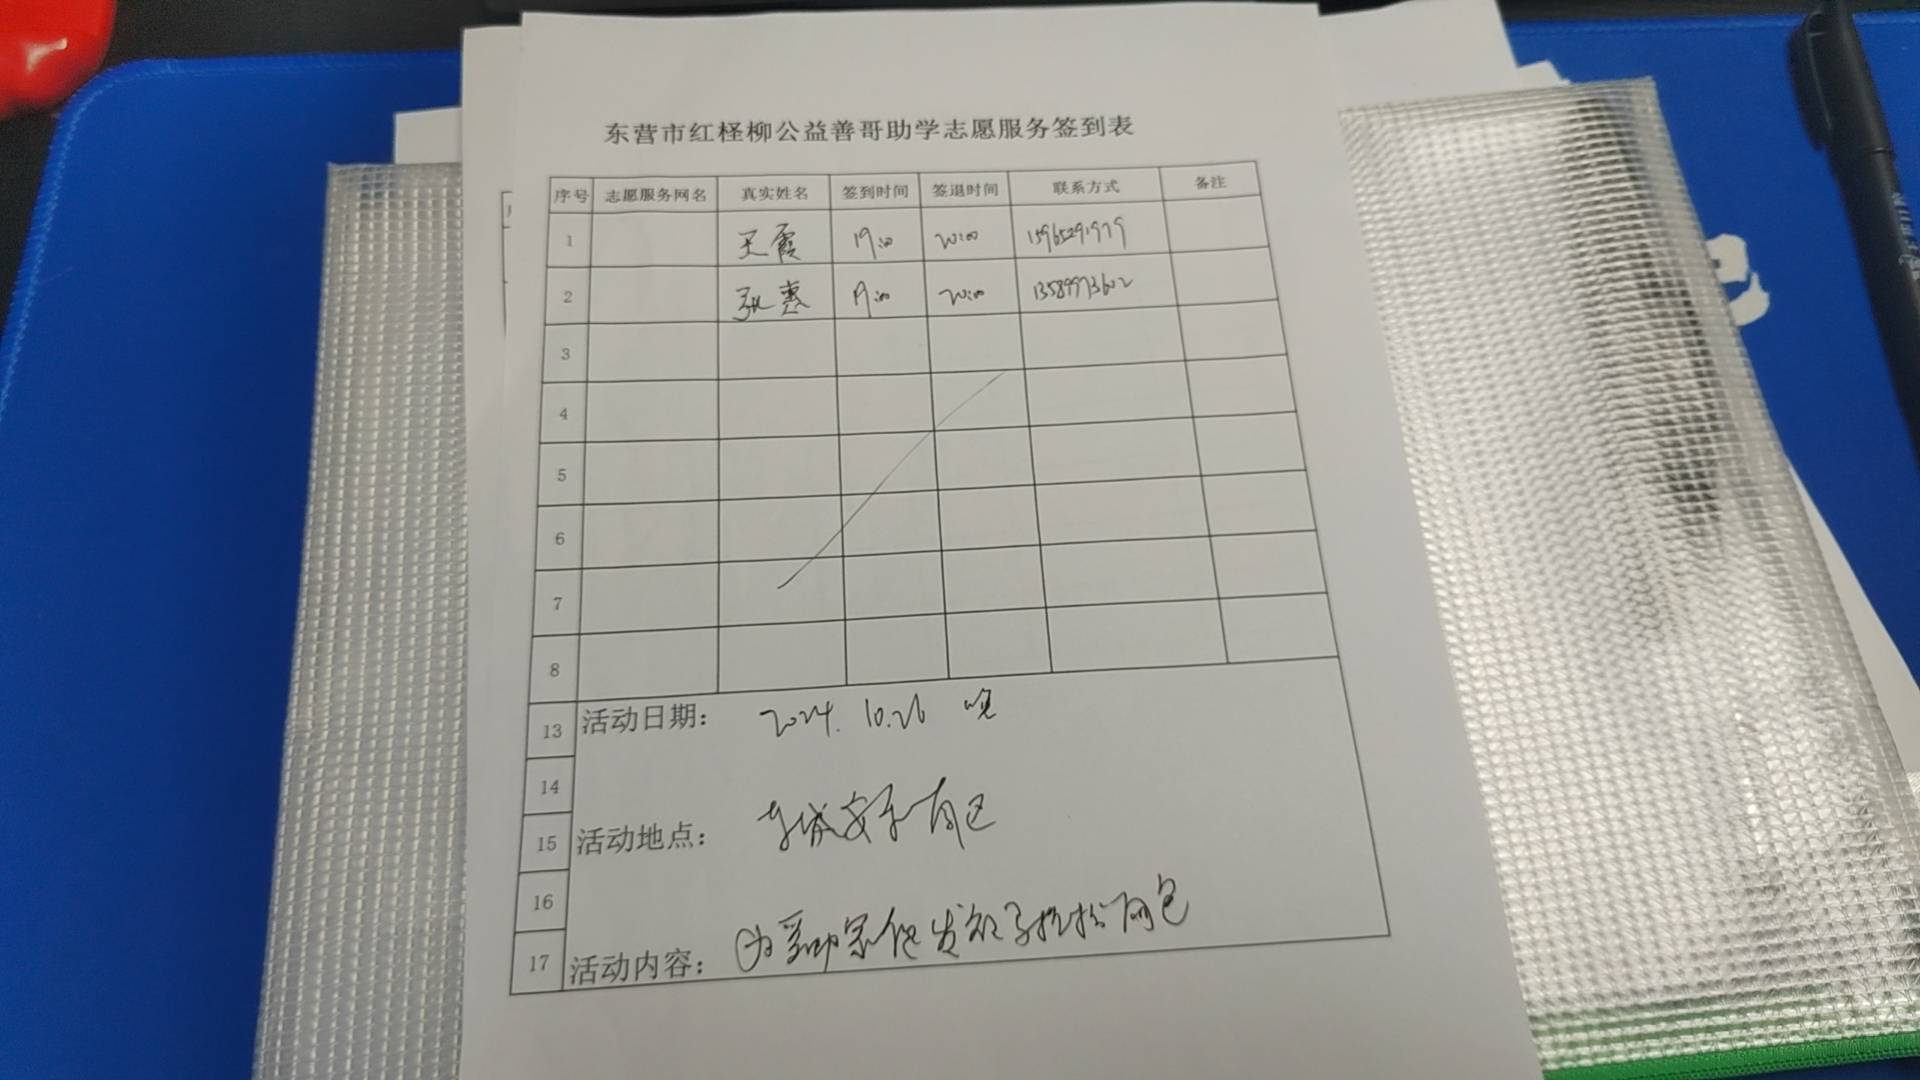 东营市红柽柳公益善哥助学志愿服务签到表
序号 志愿服务网名 真实姓名 签到时间 签退时间 联系方式 备注
1 王霞 19:00 20:00 15965291979
2 张惠 19:00 20:00 13589973602
3
4
5
6
7
8
13 活动日期: 2024.10.26 晚
14
15 活动地点: 东城安和南区
16
17 活动内容: 为受助家庭发放